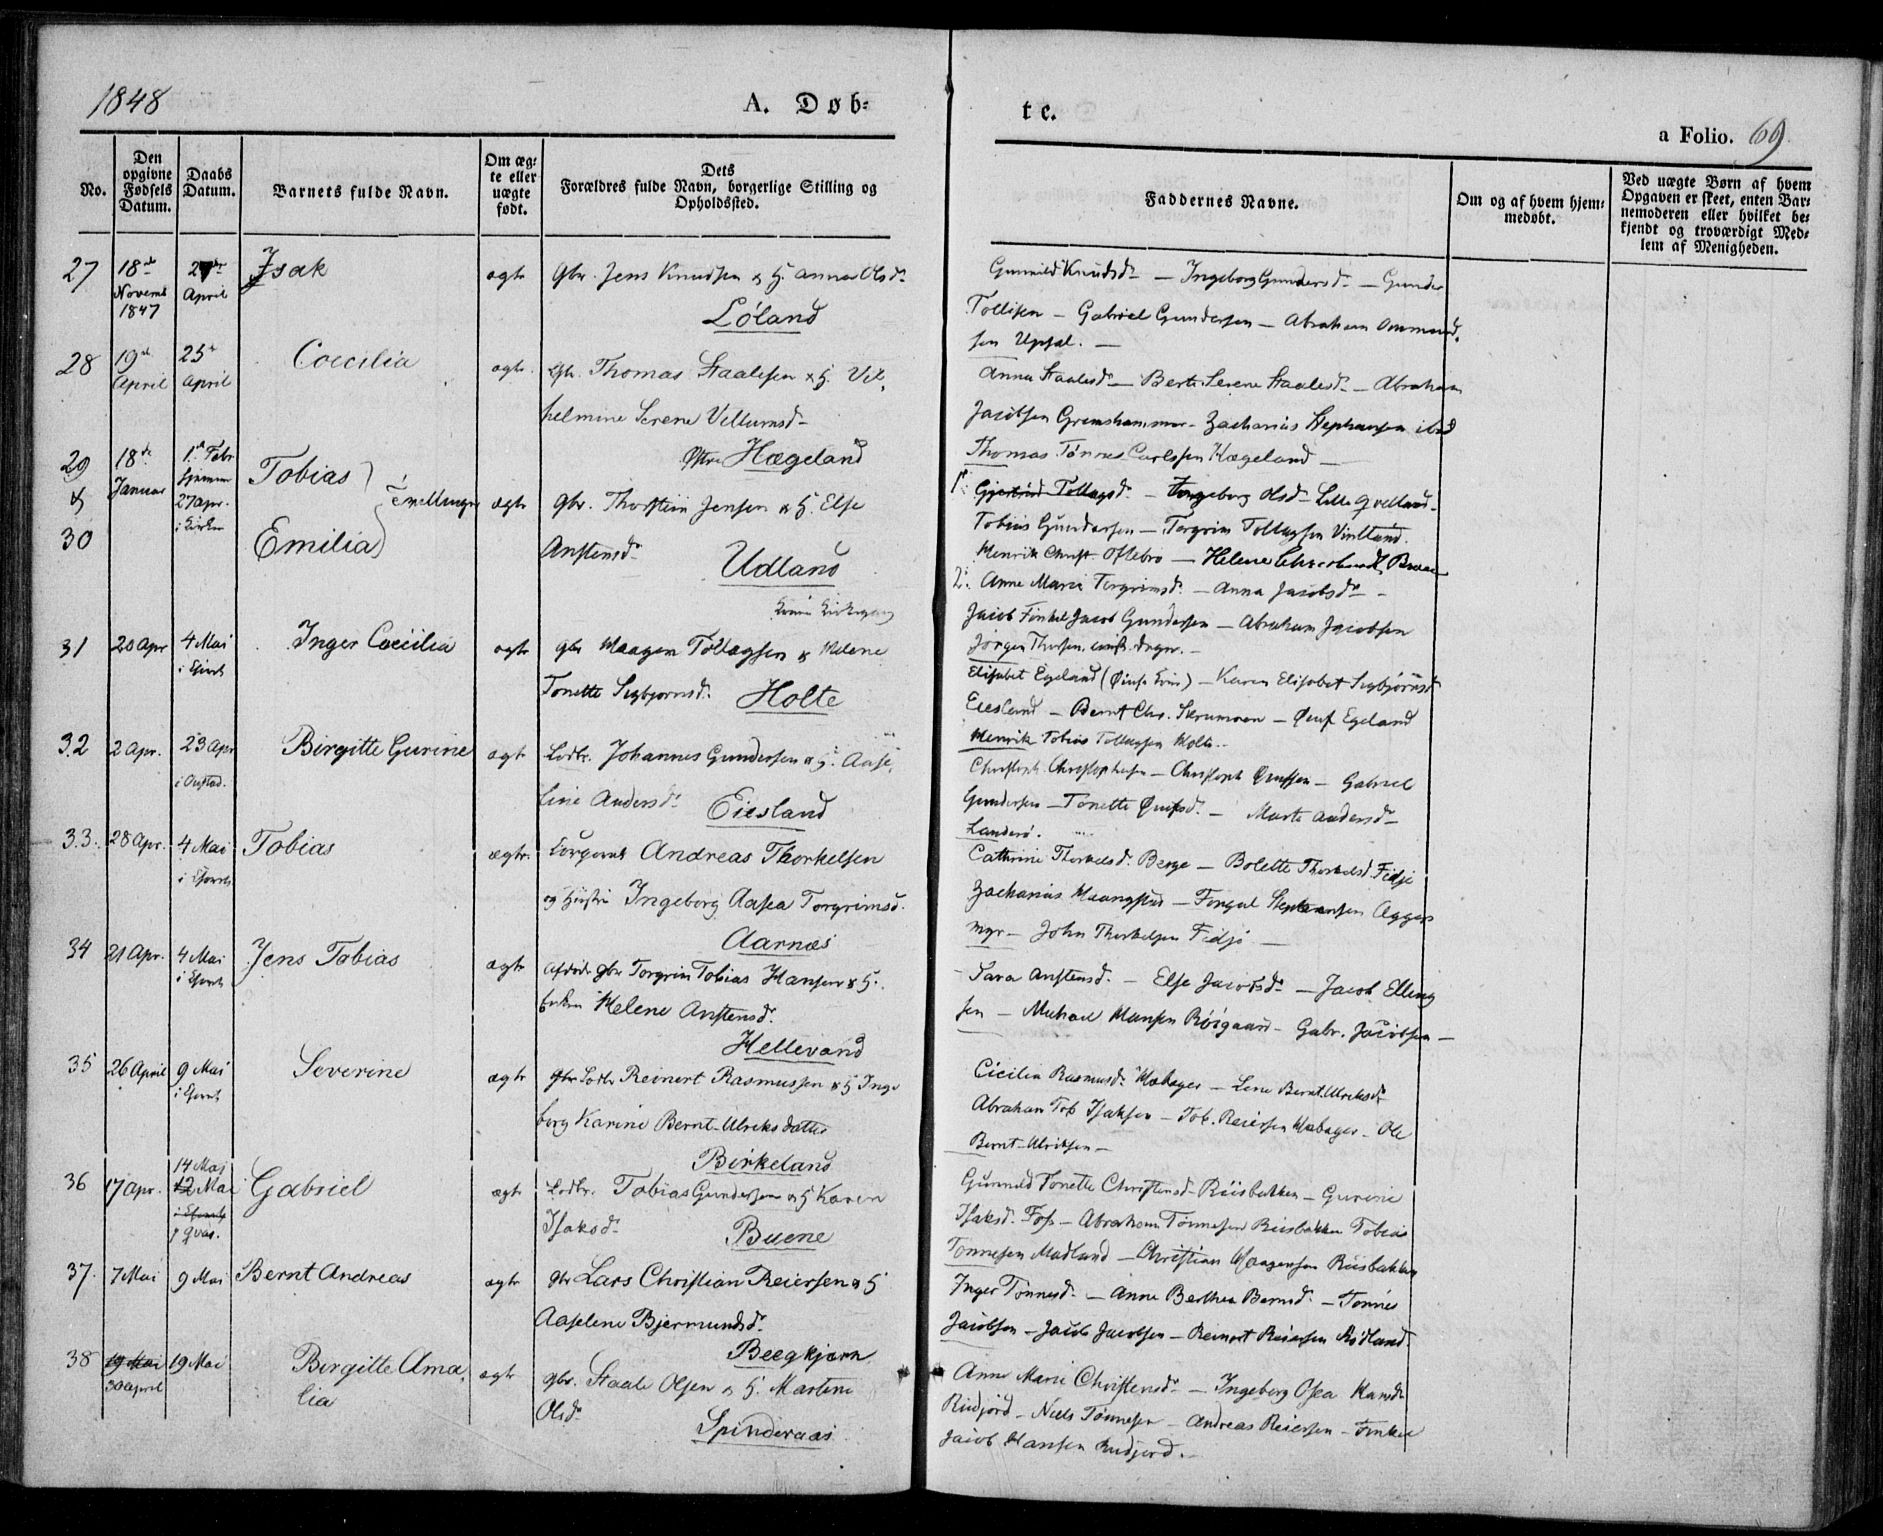 1848
A. Døb=
te.
a Folio. 69
No.
Den opgivne Fødsels Datum.
Daabs Datum.
Barnets fulde Navn.
Om æg=
te eller
uægte
født.
Dets
Forældres fulde Navn, borgerlige Stilling og
Opholdssted.
Faddernes Navne.
Om og af hvem hjem=
medøbt.
Ved uægte Børn af hvem
Opgaven er skeet, enten Bar=
nemoderen eller hvilket be=
kjendt og troværdigt Med=
lem af Menigheden.
27 18de Novemb 1847
April
Isak
ægte
Gbr. Jens Knudsen & H. Anna Olsdr
Løland
Gunnild Knudsdr — Ingeborg Gundersdr — Gunder
Tollisen — Gabriel Gundersen — Abraham Ommund
sen Upsal. —
28 19de April
25de April
Coecilia
ægte.
Gbr. Thomas Staalesen & H. Vil,
helmine Serene Villumsd
Østre Hægeland
Anna Staalesdr — Berte Serene Staalesdr — Abraham
Jacobsen Gremshammer — Zacharias Stephansen ibid
Thomas Tønnes Carlssen Hægeland —
29 & 30
18de Januar
1ste Febr hjemme 27 Apr. i Kirken
Tobias
Emilia
Tvillinger
ægte
Gbr. Thorstein Jensen & H. Else
Anstensdr
Udland
1. Gjertrud Tollagsdr — Ingeborg Olsdr Lille Qvelland
Tobias Gundersen — Torgrim Tollagsen
Henrik Christ. Oftebro — Helene
2. Anne Marie Torgrimsdr — Anna Jacobsdr —
Jacob Gundersen — Abraham Jacobsen
Jørgen
31 20 Apr
4 Mai i
Inger Coecilia
ægte
Gbr Maagen Tollagsen & Helene
Tonette Sigbjørnsdr Holte
Elisabet Egeland — Karen Elisabet Sigbjørnsdr
Eiesland — Bernt Chr. — Egeland
Henrik Tobias Tollagsen Holte
32 2 Apr.
23 Apr
Birgitte Gurine
ægte
Johannes Gundersen & H. Aase,
line Andersdr Eiesland
Christoph. Christophersen — Christoph — Gabriel
Gundersen — Tonette — Marte Andersdr
Landerø.
33. 28 Apr.
4 Mai i
Tobias
ægte.
Andreas Thorkelsen
og Hustru Ingeborg Aasea Torgrimsd.
Aarnæs
Cathrine Thorkelsdr Berge — Bolette Thorkelsd. Fidje
Zacharias — Stephansen
myr — John Thorkelsen Fidje —
34 21 Apr.
4 Mai i
Jens Tobias
ægte
Afdøde Gbr Torgrim Tobias Hansen & H.
Enken Helene Anstensdr
Hellevand
Sara Anstensd. — Else Jacobsdr — Jacob Elling
sen — Michael Hansen Røisgaard — Gabr. Jacobsen —
35 26 April
9 Mai i
Severine
ægte
Reinert Rasmussen & H Inge
borg Karine Bernt-Ulriks datter
Birkeland
Cicilia Rasmusdr — Lene Bernt Ulriksdr
Abraham Tob Isaksen — Tob. Reiersen — Ole
Bernt-Ulriksen —
36 17 Apr.
14 Mai
12 Mai
i Qvas.
Gabriel
ægte
Tobias Gundersen & H Karen
Isaksdr Buene
Gunnild Tonette Christensd. Riisbakken — Gurine
Isaksd. Foss — Abraham Tønnesen Riisbakken Tobias
Tønnesen Madland — Christian Maagensen Riisbakken
37. 7 Mai
9 Mai
Bernt Andreas
ægte
Gbr Lars Christian Reiersen & H
Aaselene Bjermundsdr
Inger Tønnesdr — Anne Berthea Berntsdr — Tønnes
Jacobsen — Jacob Jacobsen — Reinert Reiersen Rødland.
38 19 Mai 30 april
19 Mai
Birgitte Ama,
lia
ægte
Gbr. Staale Olsen & H. Martine
Olsdr
Spinderaas
Anne Marie Christensdr — Ingeborg Osea Hansdr
Rudjord — Niels Tønnesen — Andreas Reiersen —
Jacob Hansen Rudjord. —